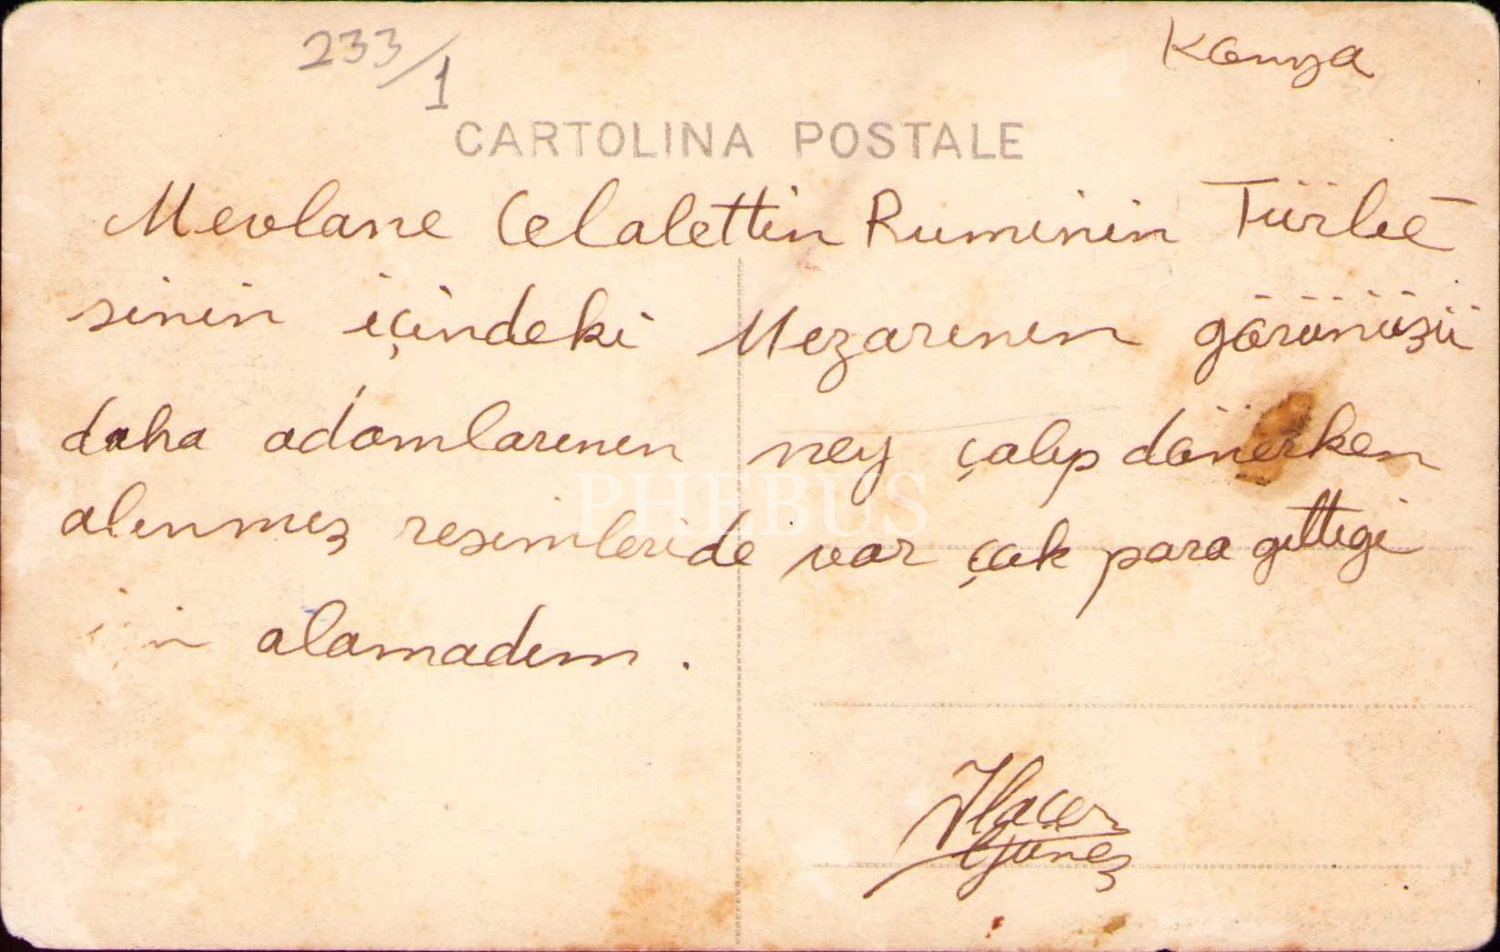 233/1
Konya
CARTOLINA POSTALE
Mevlane Celalettin Ruminin Türbe
sinin içindeki Mezarenen görünüşü
daha adamlarenen ney çalıp dönerken
alenmeş resimleride var çok para gittigi
in alamadem.
PHEBUS
Hacer
Güneş